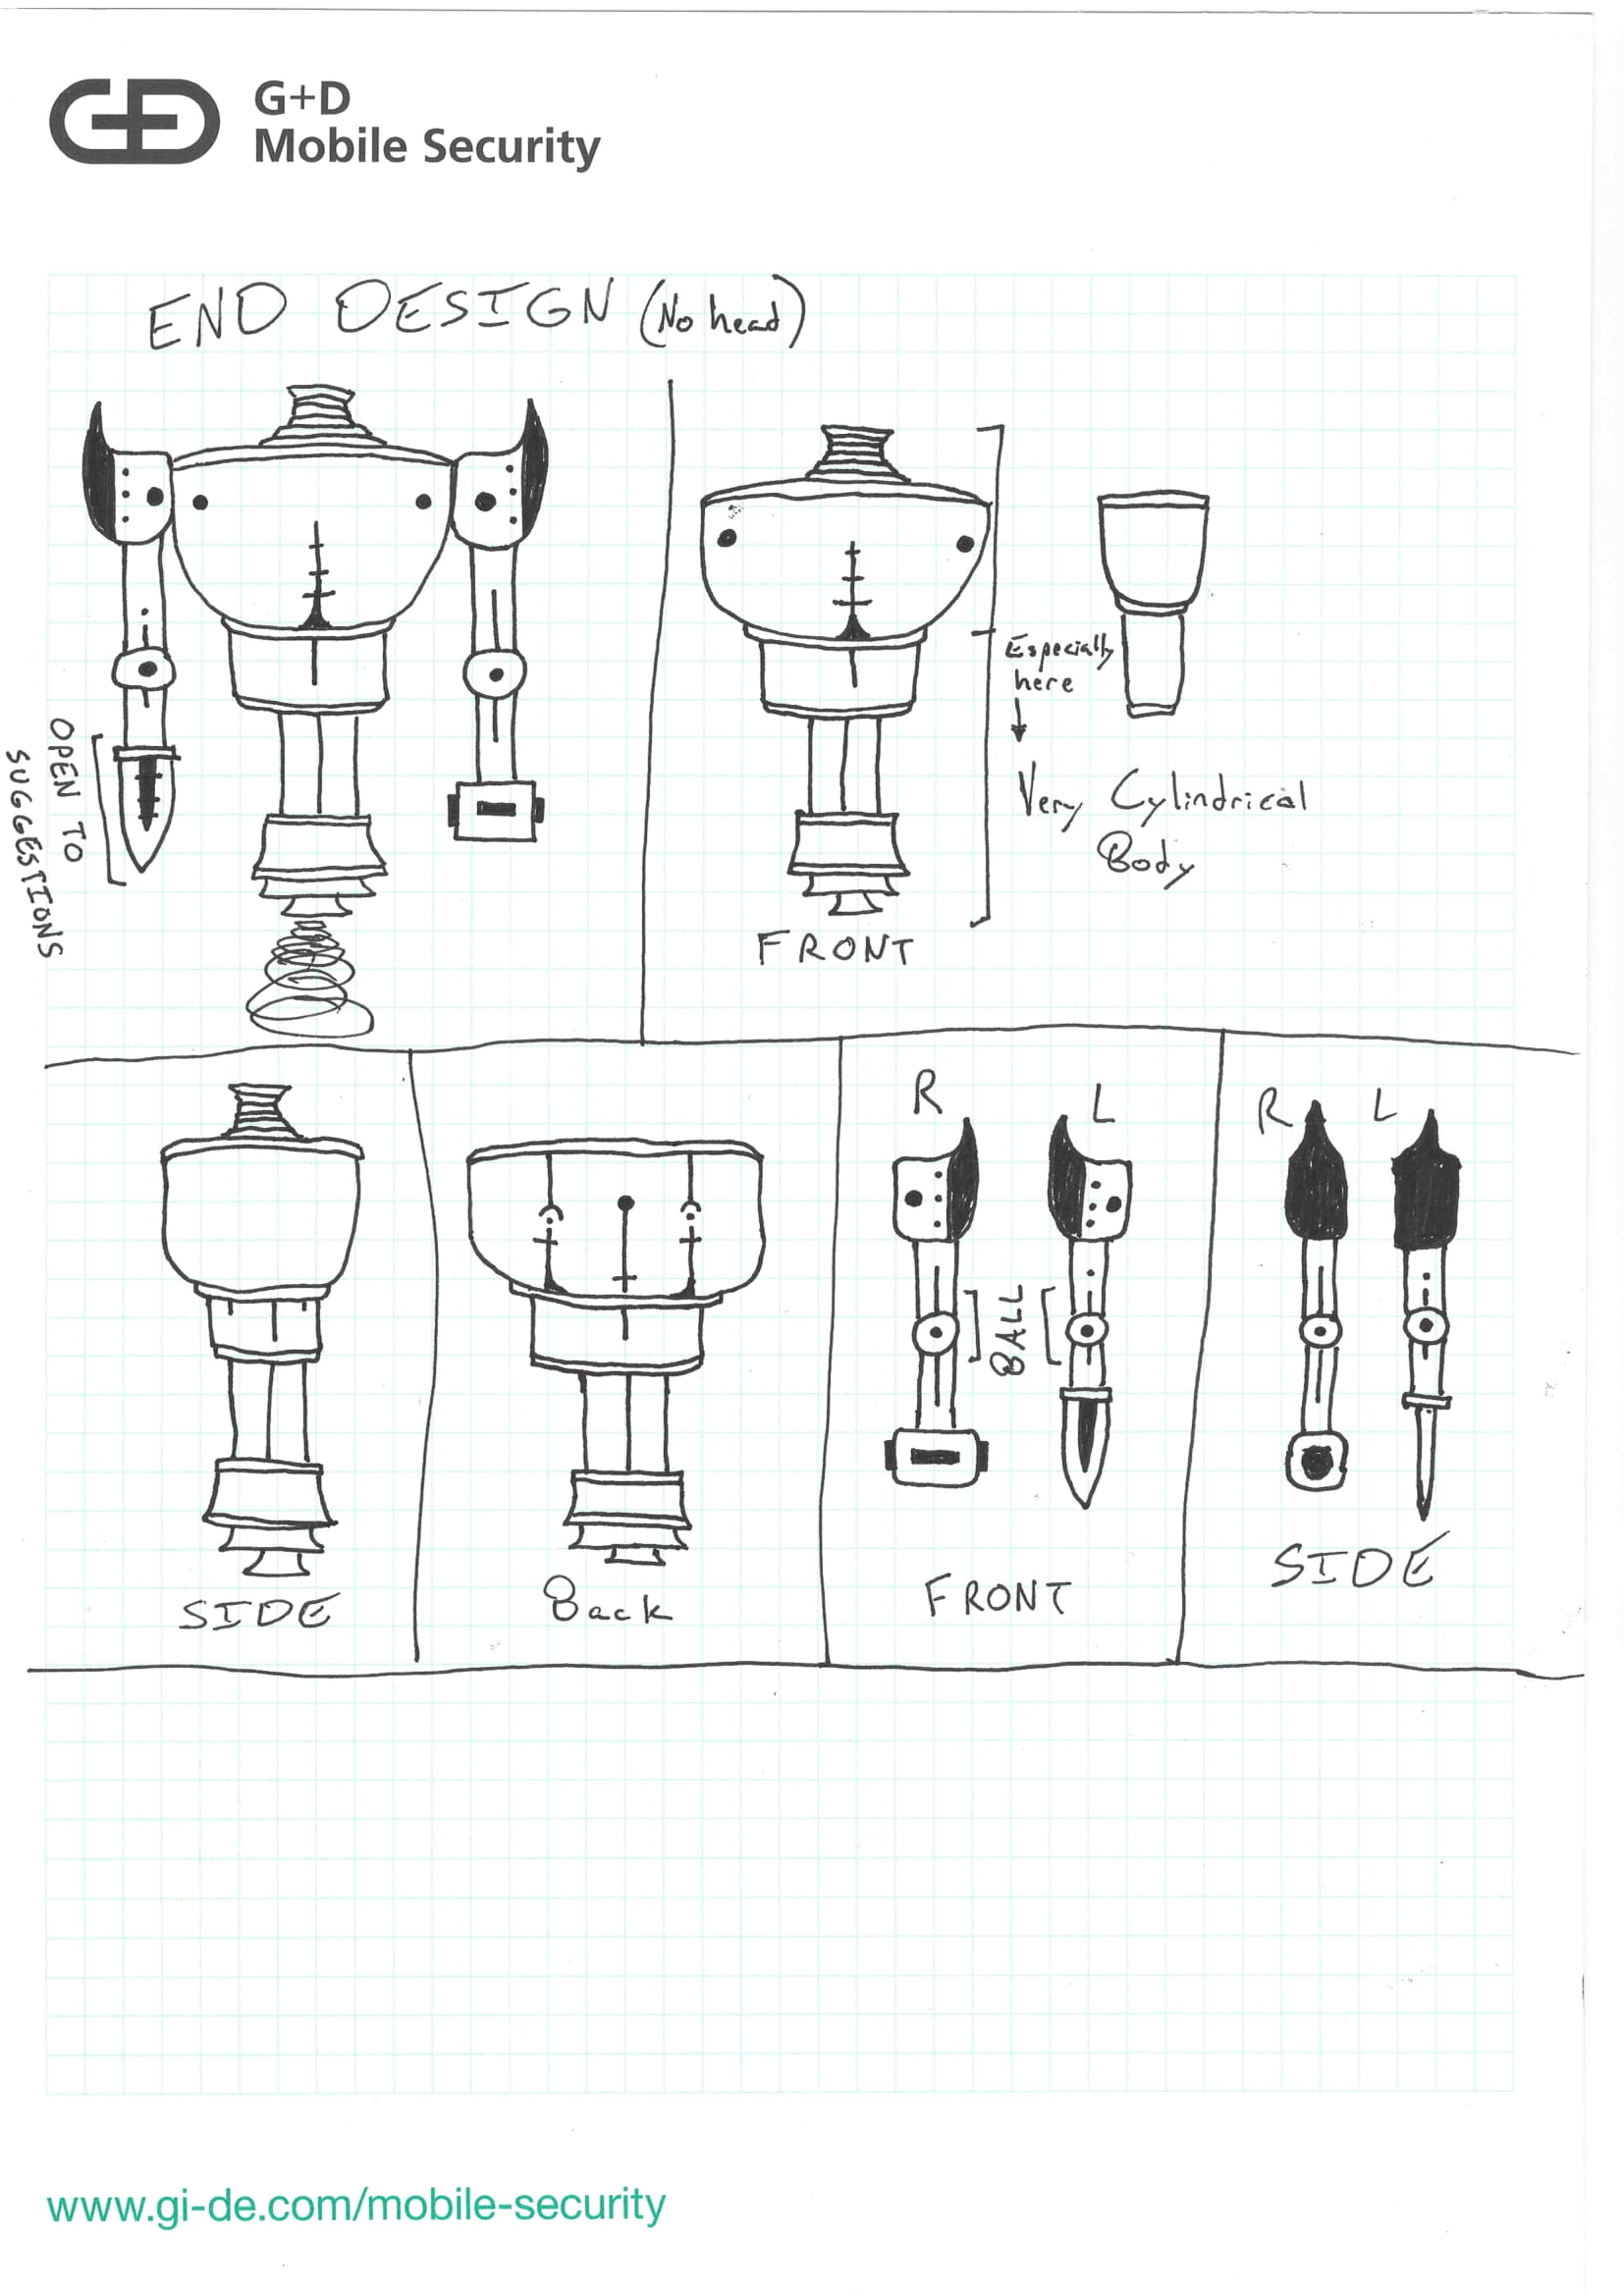 G+D
G+D
Mobile Security
END DESIGN (No head)
OPEN TO
SUGGESTIONS
Especially
here
Very Cylindrical
Body
FRONT
SIDE
Back
R
L
BALL
FRONT
R
L
SIDE
www.gi-de.com/mobile-security